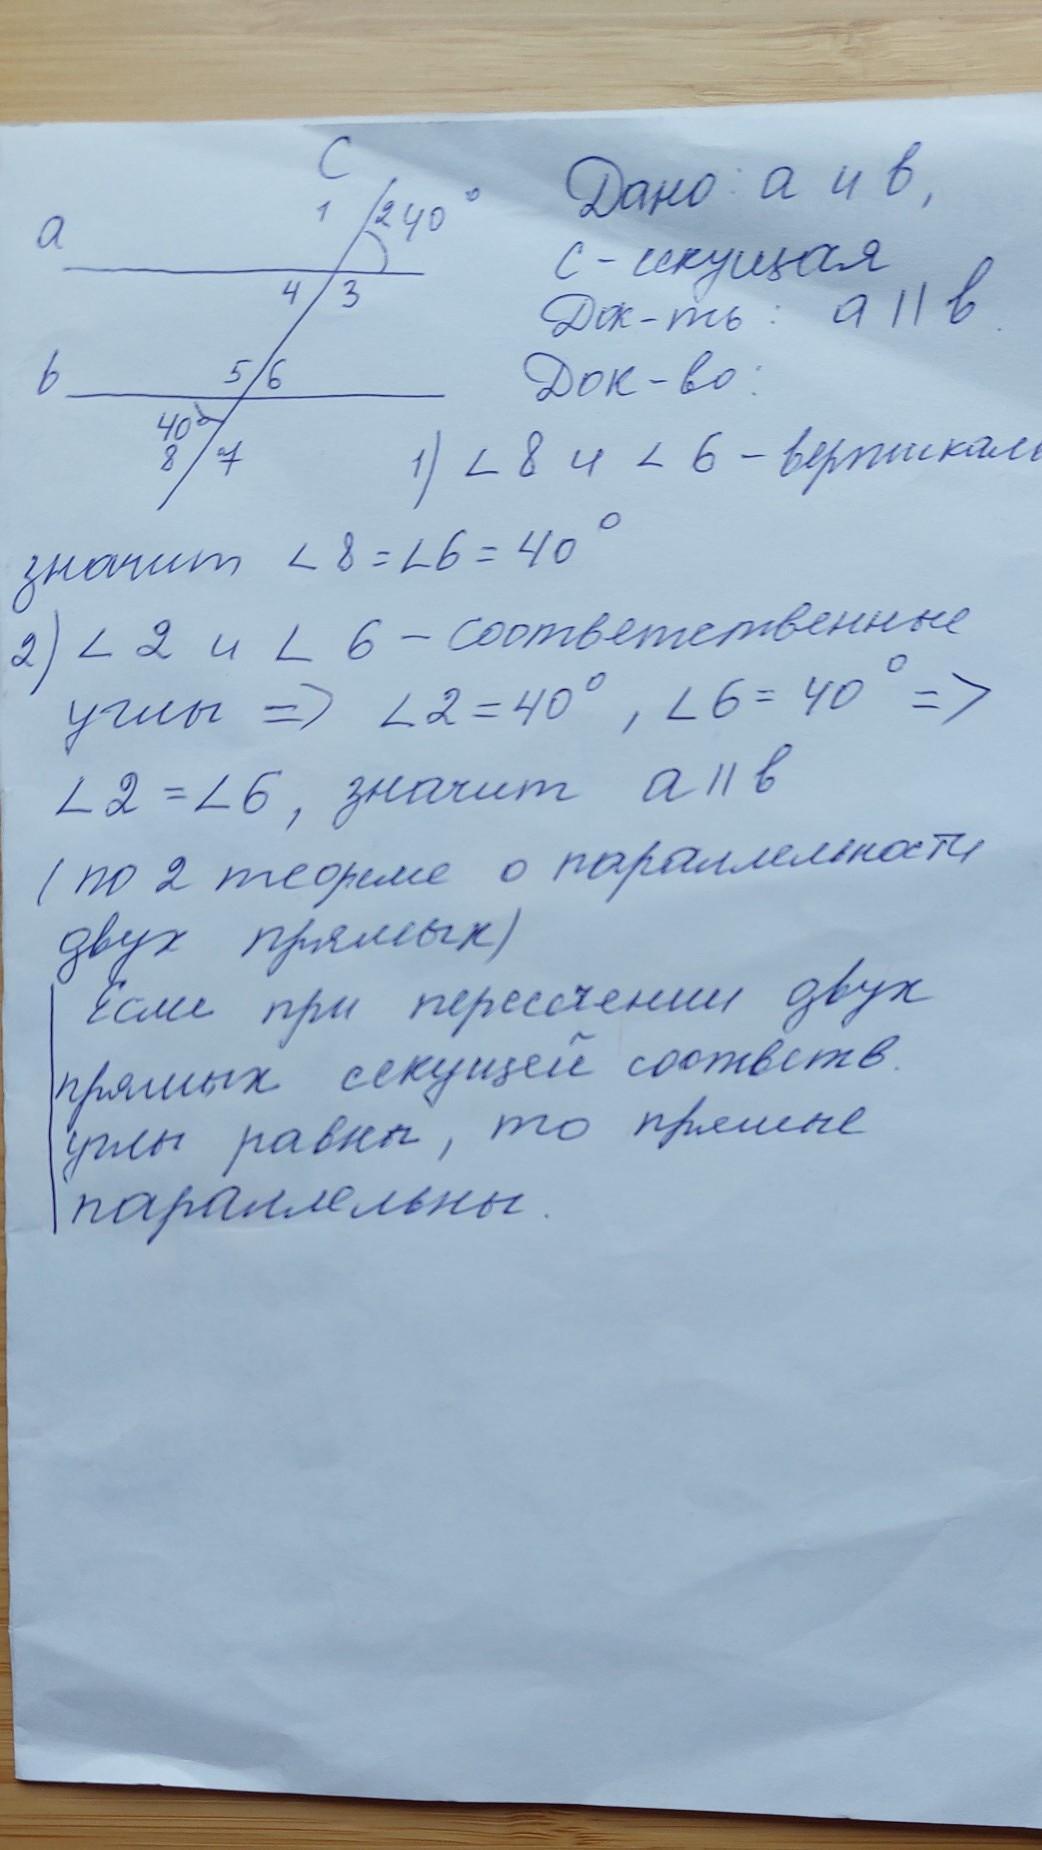 С
1 2 40°
а
4 3
b
5 6
40°
8 7
Дано: а и в,
С - секущая
Док-ть: а || в.
Док-во:
1) ∠8 и ∠6 - вертикаль
значит ∠8 = ∠6 = 40°
2) ∠2 и ∠6 - соответственные
углы => ∠2 = 40°, ∠6 = 40° =>
∠2 = ∠6, значит а || в
(по 2 теореме о параллельности
двух прямых)
Если при пересечении двух
прямых секущей соответств.
углы равны, то прямые
параллельны.